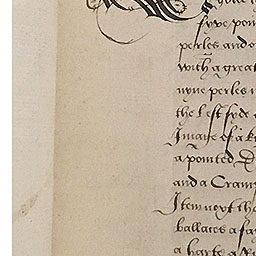 fyve poin
perles and o
with a great
nyne perles
the left syde
Image of a k
a pointed
and a Cram
Item next the
ballates a fa
a harte a